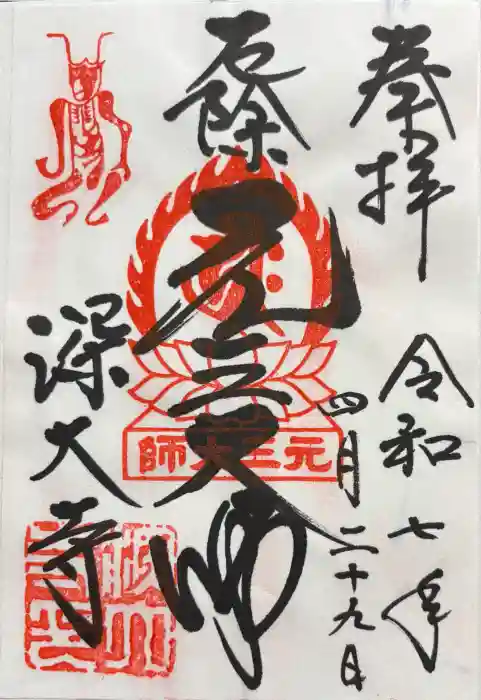 奉拝
令和七年
四月二十九日
厄除
元三大師
深大寺
元三大師